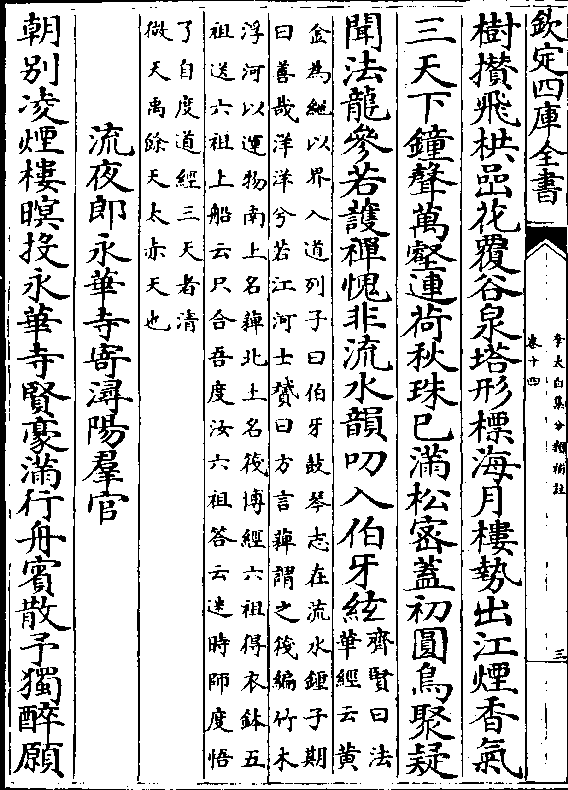 欽定四庫全書
李太白集分類補註
卷十四
三
樹攅飛栱嵒花覆谷泉塔形標海月樓勢出江煙香氣
三天下鐘聲萬壑連荷秋珠已滿松宻蓋初圓鳥聚疑
聞法龍參若護禪愧非流水韻叨入伯牙絃
齊賢曰法
華經云黄
金為繩以界入道列子曰伯牙鼓琴志在流水鍾子期
曰善哉洋洋兮若江河士贇曰方言簰謂之筏編竹木
浮河以運物南土名簰北土名筏博經六祖得衣鉢五
祖送六祖上船云只合吾度汝六祖答云迷時師度悟
了自度道經三天者清
微天禹餘天太赤天也
流夜郎永華寺寄潯陽羣官
朝别凌煙樓暝投永華寺賢豪滿行舟賓散予獨醉願